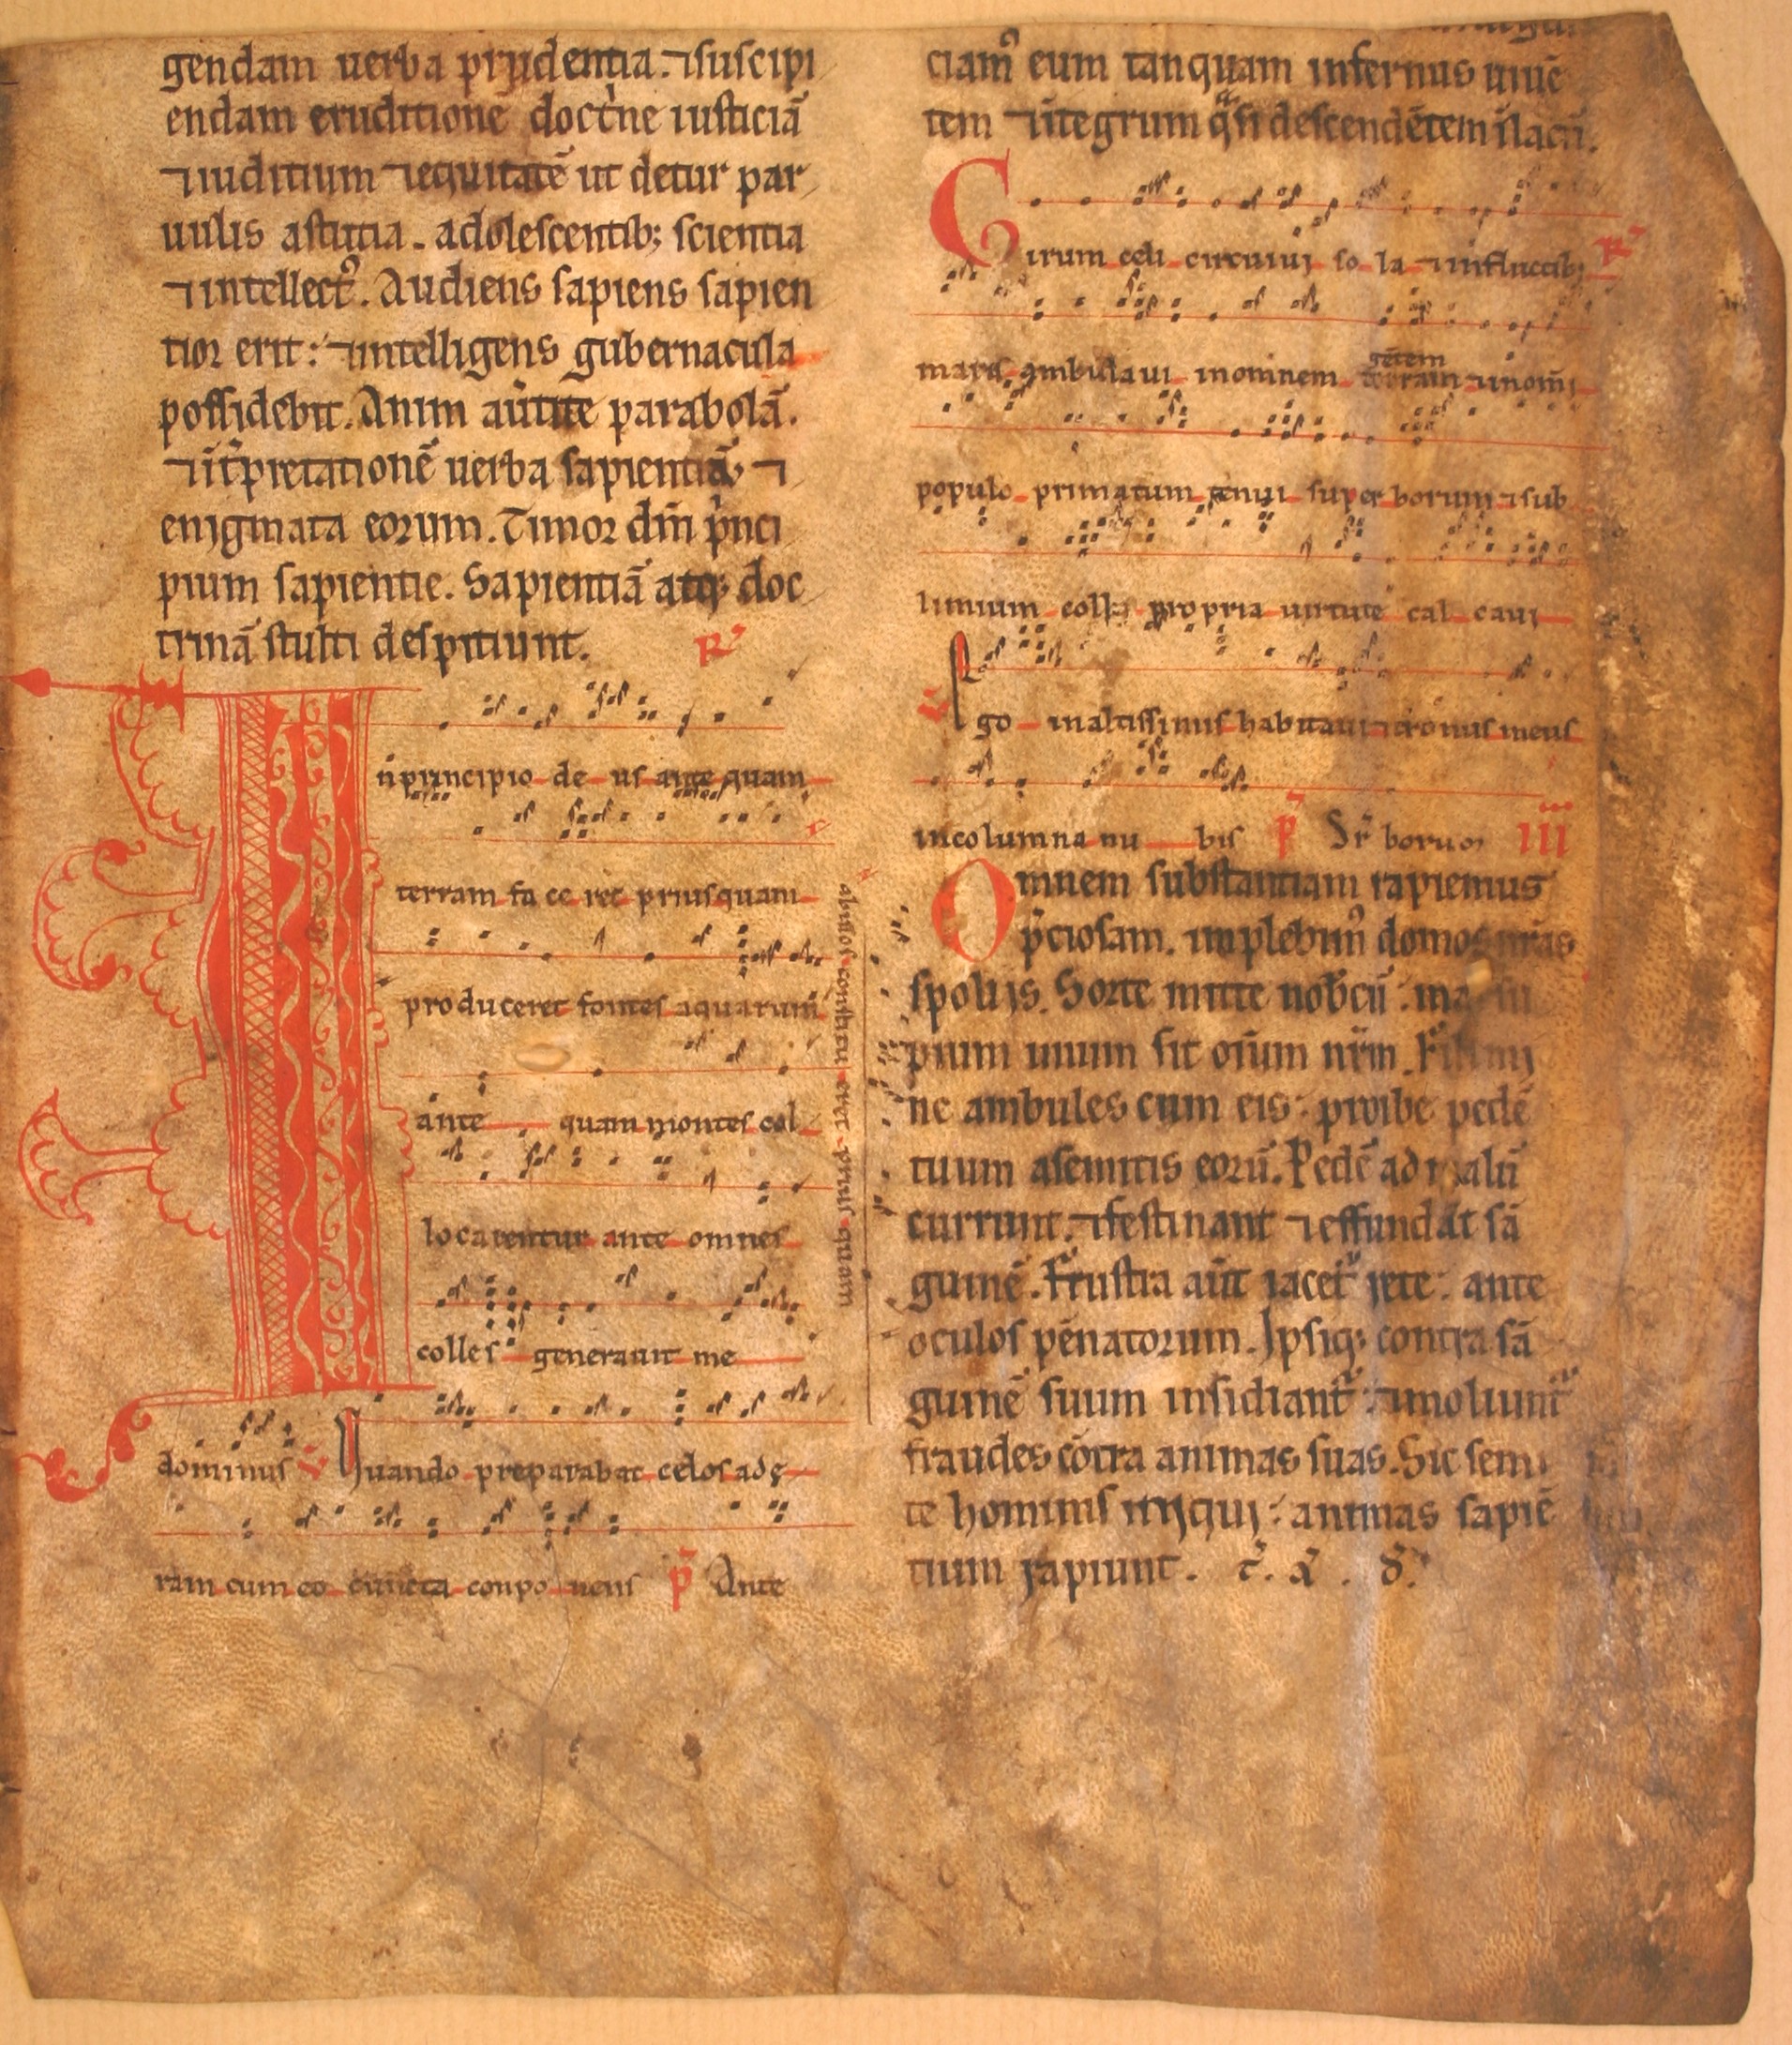 gendam uerba prudentia. ⁊suscipi
endam eruditione doct'ne iusticiā
⁊iuditium ⁊equitatē ut detur par
uulis astutia. adolescentib; scientia
⁊intellect᾽. Audiens sapiens sapien
tior erit: ⁊intelligens gubernacula
possidebit. Anim aūtite parabolā.
⁊īt̄pretationē uerba sapientiā, ⁊
enigmata eorum. Timor dn̄i p'nci
pium sapientie. Sapientiā atq; doc
trinā stulti despitiunt. R᾽
In principio de us ante quam
terram fa ce ret priusquam
abissos constitu eret prius quam
produceret fontes aquarum
ante quam montes col
locarentur ante omnes
colles generauit me
dominus V Quando preparabat celos adę
ram cum eo cuncta conpo nens p̄ Ante
ciam᾽ eum tanquam infernus uiuē
tem ⁊ītegrum q̄si descendētem ī lacū.
Girum celi circuiui so la ⁊influctib; R᾽
maris ambulaui inomnem gētem terram ⁊inom̄i
populo primatum tenui super borum ⁊sub
limium colla propria uirtute cal caui
V Ego inaltissimis habitaui ⁊tronus meus
incolumna nu bis p̄ Sr̄ boruȝ III
Omnem substantiam rapiemus
p̄ciosam. implebim᾽ domos nr̄as
spoliis. Sorte mitte nob̄cū: ma su
pium unum sit oīum nr̄m. Fili mi
ne ambules cum eis: proibe pedē
tuum asemitis eorū. Pedē ad malū
currunt. ⁊festinant ⁊effundāt sā
guinē. Frustra aūt iacet᾽ rete: ante
oculos pēnatorum. Ipsiq; contra sā
guinē suum insidiant᾽: ⁊moliunt᾽
fraudes cōtra animas suas. Sic semi
te hominis iniqui: animas sapiē
tium rapiunt.